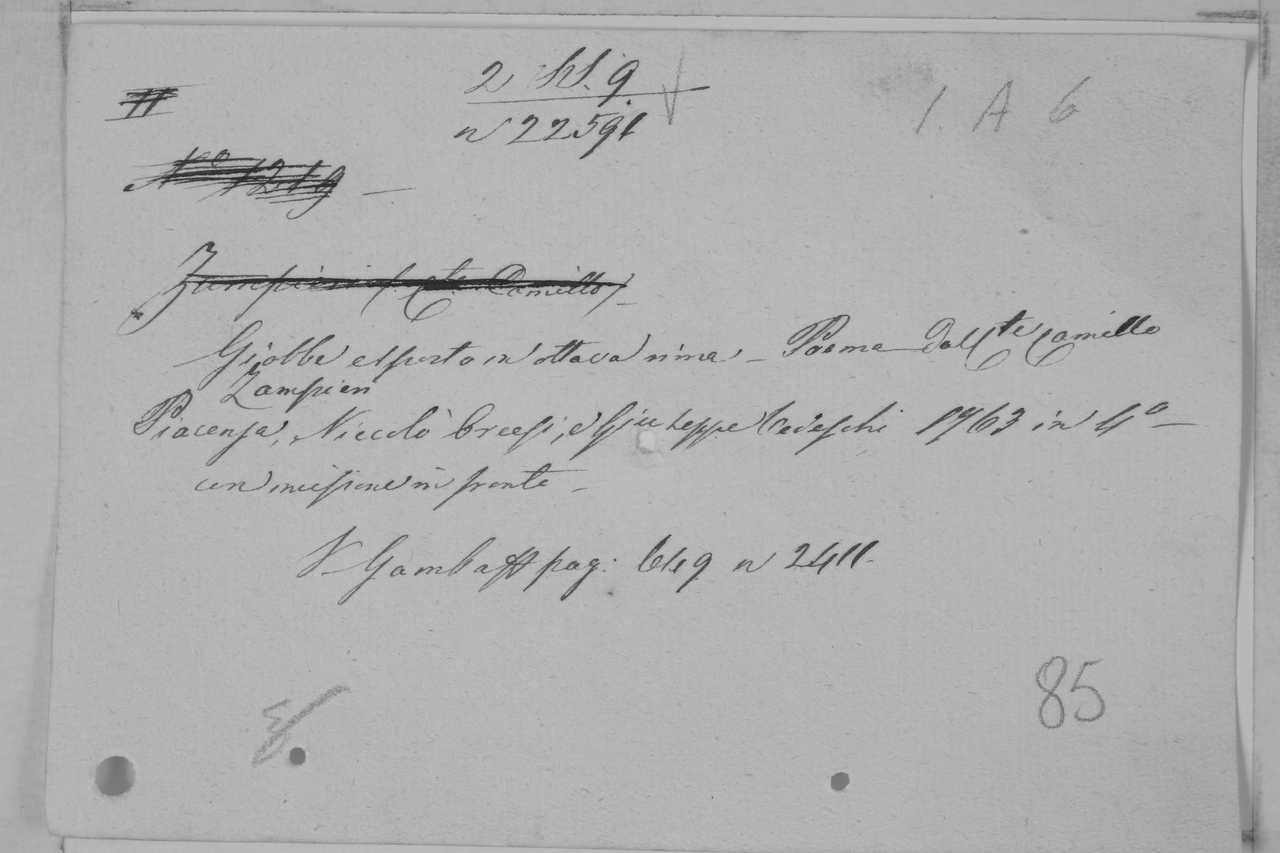 2 hl. 9
1. A 6
n 22591
N° 1219
Zampieri (Cte Camillo)
Giobbe esposto in ottava rima - Poema del Cte Camillo
Zampieri
Piacenza, Niccolò Orcesi, e Giuseppe Tedeschi 1763 in 4°
con incisione in fronte
V. Gamba pag: 649 n 2411.
85